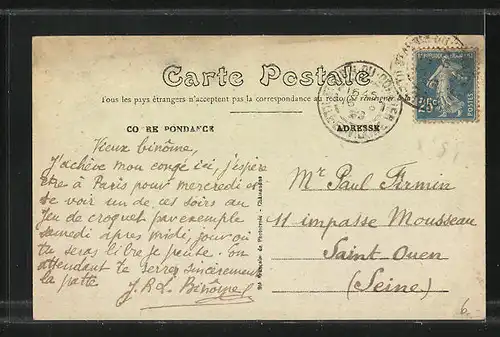 Carte Postale
Tous les pays étrangers n'acceptent pas la correspondance au recto
CO RE PONDANCE
ADRESSE
25c
POSTES
Vieux binôme,
J'achève mon congé ici, j'espère
être à Paris pour mercredi et
te voir un de ces soirs au
jeu de croquet par exemple
samedi après midi, jour où
tu seras libre je pense. En
attendant te serrer sincèrement
la patte
J.R.L. Binôme
Mr Paul Firmin
11 impasse Mousseau
Saint Ouen
(Seine)
6